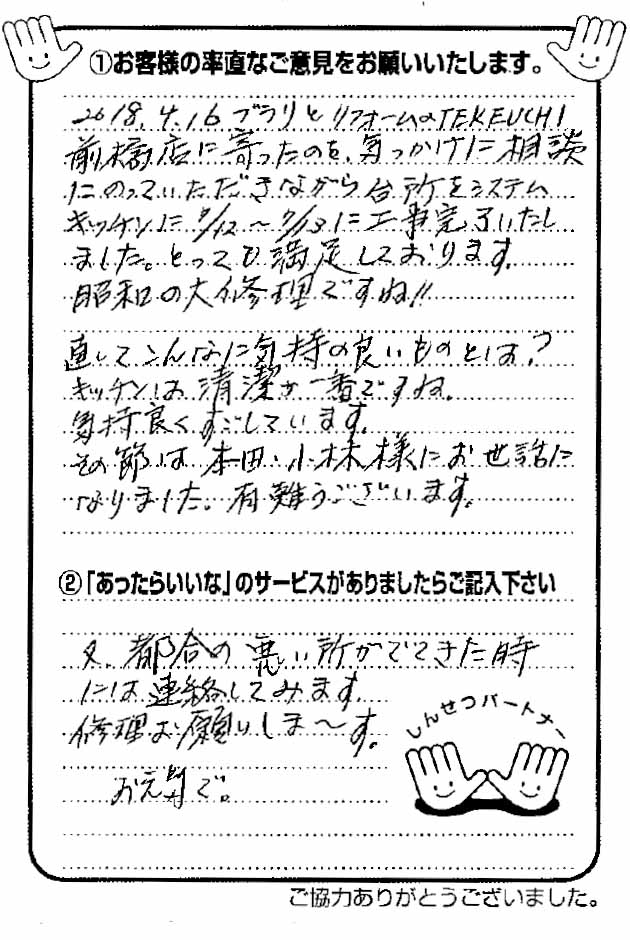 ①お客様の率直なご意見をお願いいたします。
2018.4.16 ブラリとリフォームのTEKEUCHI
前橋店に寄ったのを、気っかけに相談
にのっていただきながら台所をシステム
キッチンに 9/12～9/13に工事完了いたし
ました。とっても満足しております。
昭和の大修理ですね!!
直してこんなに気持の良いものとは?
キッチンは清潔が一番ですね。
気持良くすごしています。
その節は本田、小林様にお世話に
なりました。有難うございます。
②「あったらいいな」のサービスがありましたらご記入下さい
又、都合の悪い所がでてきた時
には連絡してみます。
修理お願いしま～す。
お元気で。
しんせつパートナー
ご協力ありがとうございました。